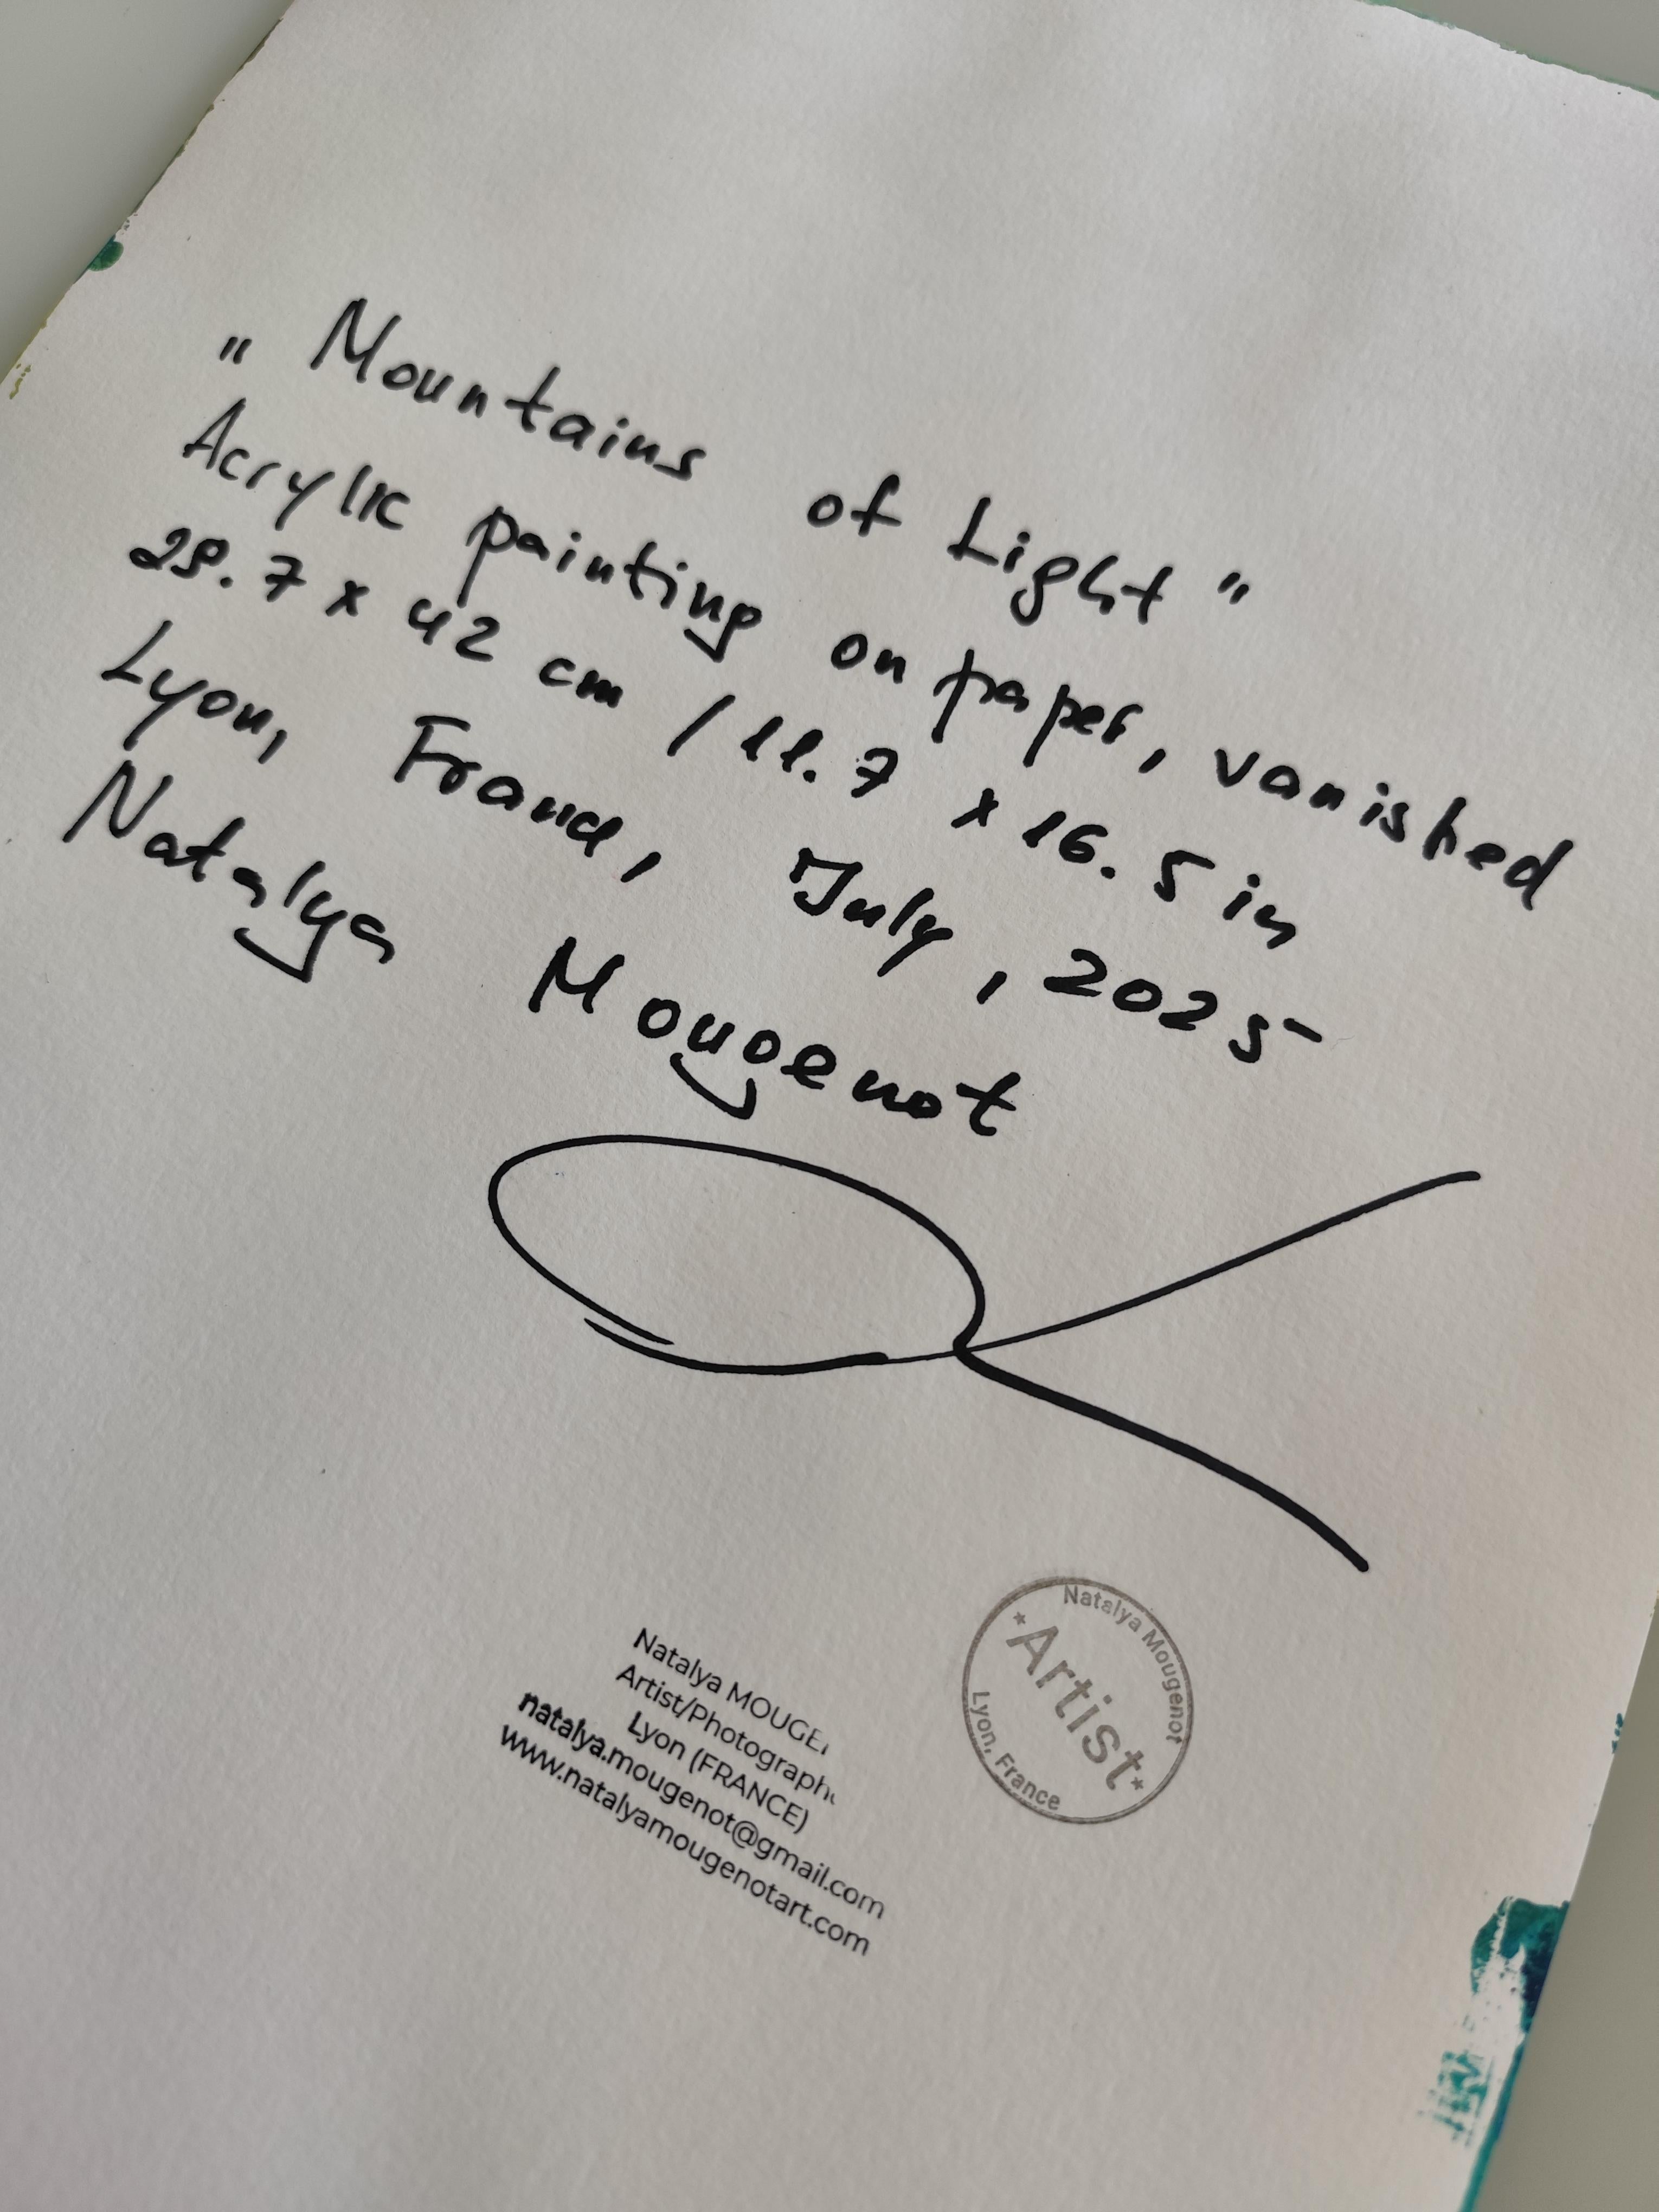 "Mountains of Light"
Acrylic painting on paper, vanished
29.7 x 42 cm / 11.7 x 16.5 in
Lyon, France, July, 2025
Natalya Mougenot
Natalya MOUGE
Artist/Photograph
Lyon (FRANCE)
natalya.mougenot@gmail.com
www.natalyamougenotart.com
Natalya Mougenot
*Artist*
Lyon, France